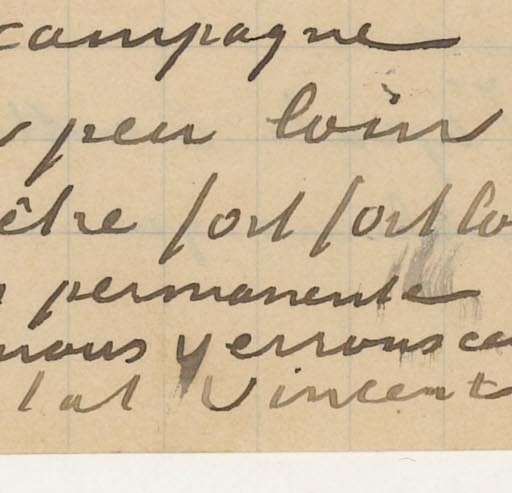 campagne
peu loin
être fort fort lo
permanente
nous verrons ca
Vincent